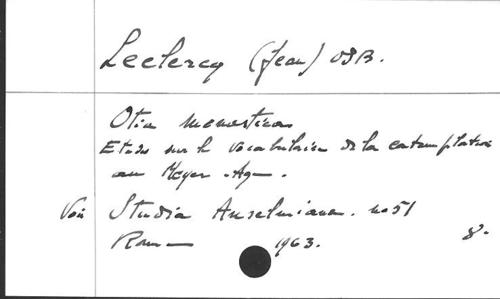 Leclercq (Jean) OSB.
Otia monastica
Etudes sur le vocabulaire de la contemplation
au Moyen-Age.
Voir Studia Anselmiana. no 51
Roma 1963. 8°